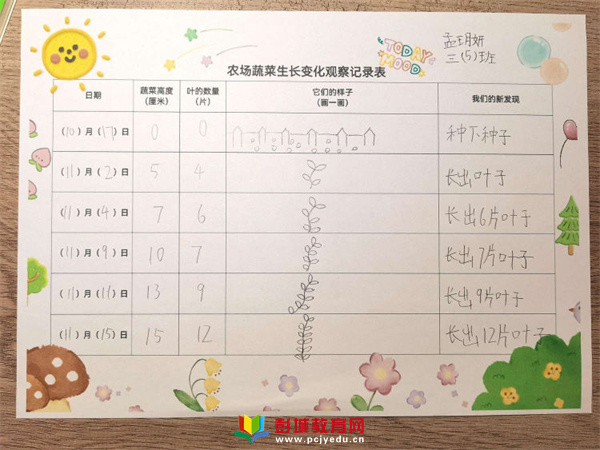 TODAY
MOOD
孟玥妍
三(5)班
农场蔬菜生长变化观察记录表
日期 蔬菜高度(厘米) 叶的数量(片) 它们的样子(画一画) 我们的新发现
(10)月(17)日 0 0 种下种子
(11)月(2)日 5 4 长出叶子
(11)月(4)日 7 6 长出6片叶子
(11)月(9)日 10 7 长出7片叶子
(11)月(11)日 13 9 长出9片叶子
(11)月(15)日 15 12 长出12片叶子
彭城教育网
www.pcjyedu.cn